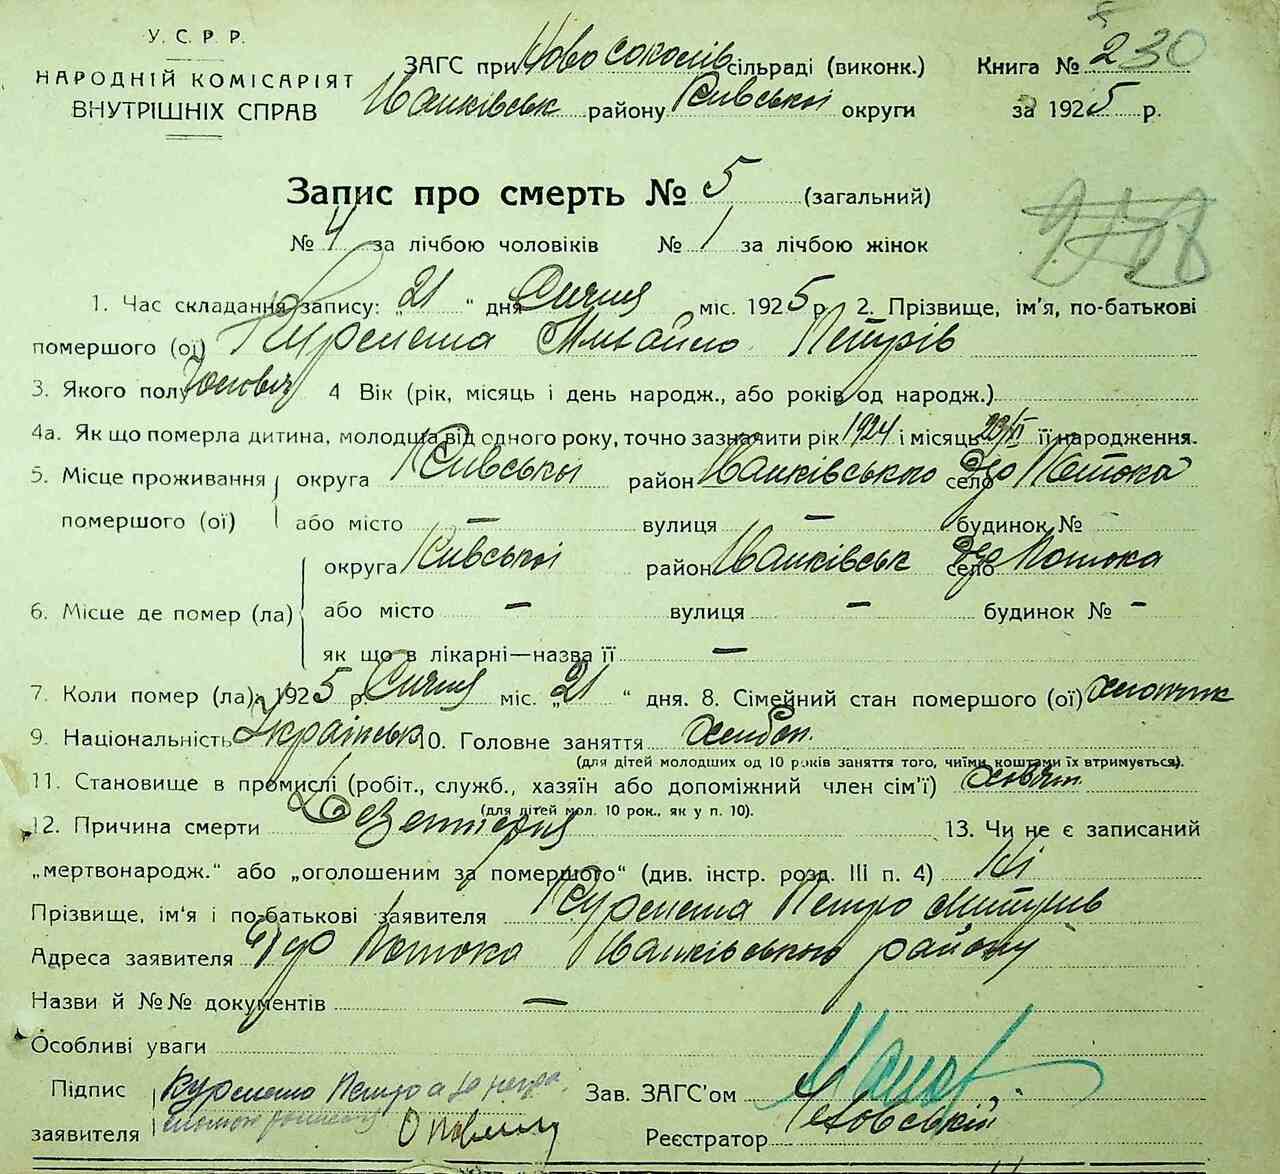 У. С. Р. Р.
НАРОДНІЙ КОМІСАРІЯТ
ВНУТРІШНІХ СПРАВ
ЗАГС при Ново соколів сільраді (виконк.)
Іванківськ району Київської округи
Книга № 230
за 1925 р.
Запис про смерть № 5 (загальний)
№ 4 за лічбою чоловіків № 1 за лічбою жінок
1. Час складання запису: „21 “ дня Січня міс. 1925 р. 2. Прізвище, ім'я, по-батькові
помершого (ої) Курепета Михайло Петрів
3. Якого полу Чоловіч 4 Вік (рік, місяць і день народж., або років од народж.)
4а. Як що померла дитина, молодша від одного року, точно зазначити рік 1924 і місяць 29/XI її народження.
5. Місце проживання округа Київської район Іванківського село Потока
помершого (ої) або місто — вулиця — будинок №
округа Київської район Іванківськ село Потока
6. Місце де помер (ла) або місто — вулиця — будинок № —
як що в лікарні—назва її —
7. Коли помер (ла) 1925 р. Січня міс. „21 “ дня. 8. Сімейний стан помершого (ої) хлопчик
9. Національність Українськ 10. Головне заняття хлібоп.
(для дітей молодших од 10 років заняття того, чиїми коштами їх втримується).
11. Становище в промислі (робіт., служб., хазяїн або допоміжний член сім'ї)
(для дітей мол. 10 рок., як у п. 10).
12. Причина смерти Дезентерія 13. Чи не є записаний
„мертвонародж.“ або „оголошеним за помершого“ (див. інстр. розд. III п. 4) Ні
Прізвище, ім'я і по-батькові заявителя Курепета Петро
Адреса заявителя Потока Іванківського району
Назви й №№ документів —
Особливі уваги
Підпис Петро Зав. ЗАГС'ом
заявителя Реєстратор